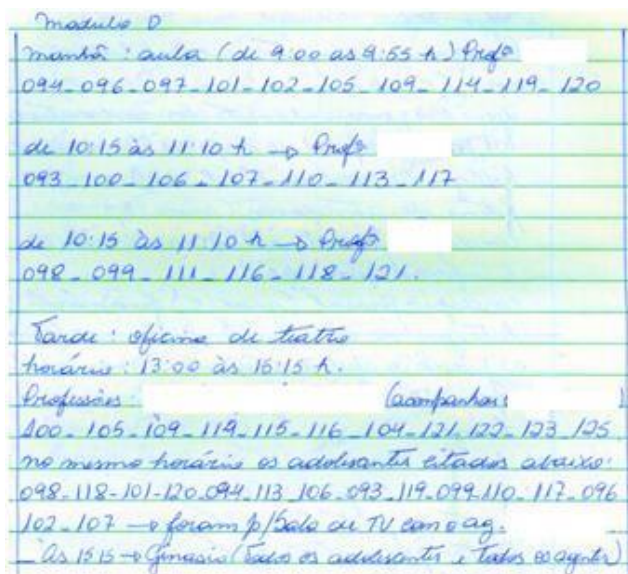 modulo D
manhã: aula (de 9:00 as 9:55 h) Profº
094-096-097-101-102-105-109-114-119-120
de 10:15 às 11:10 h → Profº
093-100-106-107-110-113-117
de 10:15 às 11:10 h → Profº
098-099-111-116-118-121.
Tarde: oficina de teatro
horário: 13:00 às 15:15 h.
Professôres: (acompanhar: )
100-105-109-114-115-116-104-121-122-123-125
no mesmo horário os adolesantes citados abaixo:
098-118-101-120-094-113-106-093-119-099-110-117-096
102-107 → foram p/Sala de TV com o ag.
- Às 15:15 → Ginasio (Todos os adolescentes e todos os agentes)